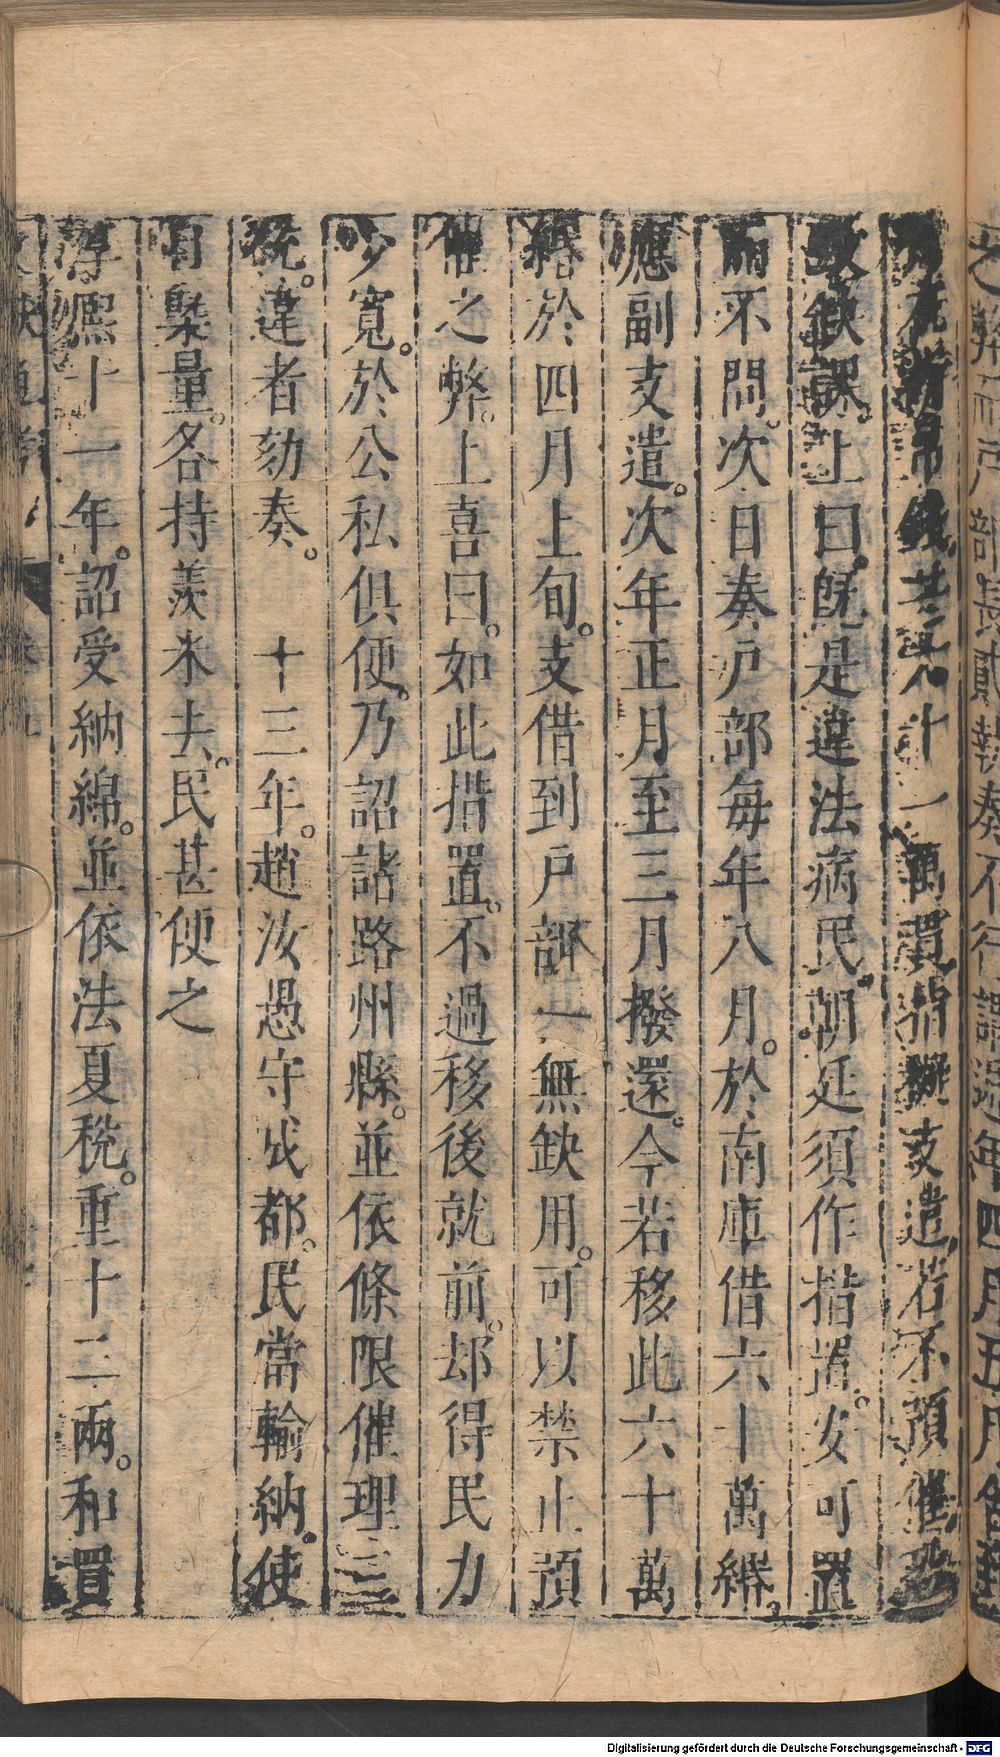 之弊而戶部長貳執奏不行謂遞年四月五月合到
折帛錢共六十一萬貫指擬支遣若不預催恐
致缺課。上曰。旣是違法病民。朝廷須作措置。安可置
而不問。次日奏戶部每年八月。於南庫借六十萬緡
應副支遣。次年正月至三月撥還。今若移此六十萬
緡於四月上旬。支借到戶部一無缺用。可以禁止預
催之弊。上喜曰。如此措置。不過移後就前。却得民力
少寬。於公私俱便。乃詔諸路州縣。並依條限催理二
稅。違者劾奏。 十三年。趙汝愚守成都。民當輸納。使
自槩量。各持羨米去。民甚便之
淳熙十一年。詔受納綿。並依法夏稅。重十二兩。和買
Digitalisierung gefördert durch die Deutsche Forschungsgemeinschaft - DFG